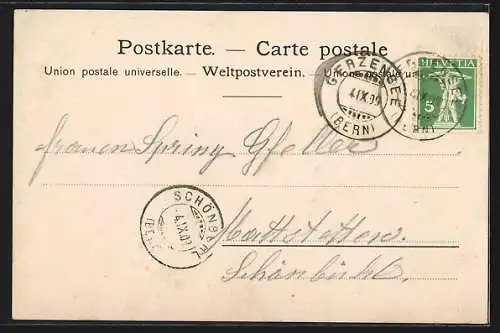 Postkarte. — Carte postale
Union postale universelle. — Weltpostverein. — Unione postale
GERZENSEE
4.IX.09
(BERN)
HELVETIA
5
Frauen Spring Gfeller
SCHÖNBÜHL
4.IX.09
(BERN)
Mattstetten
Schönbühl.